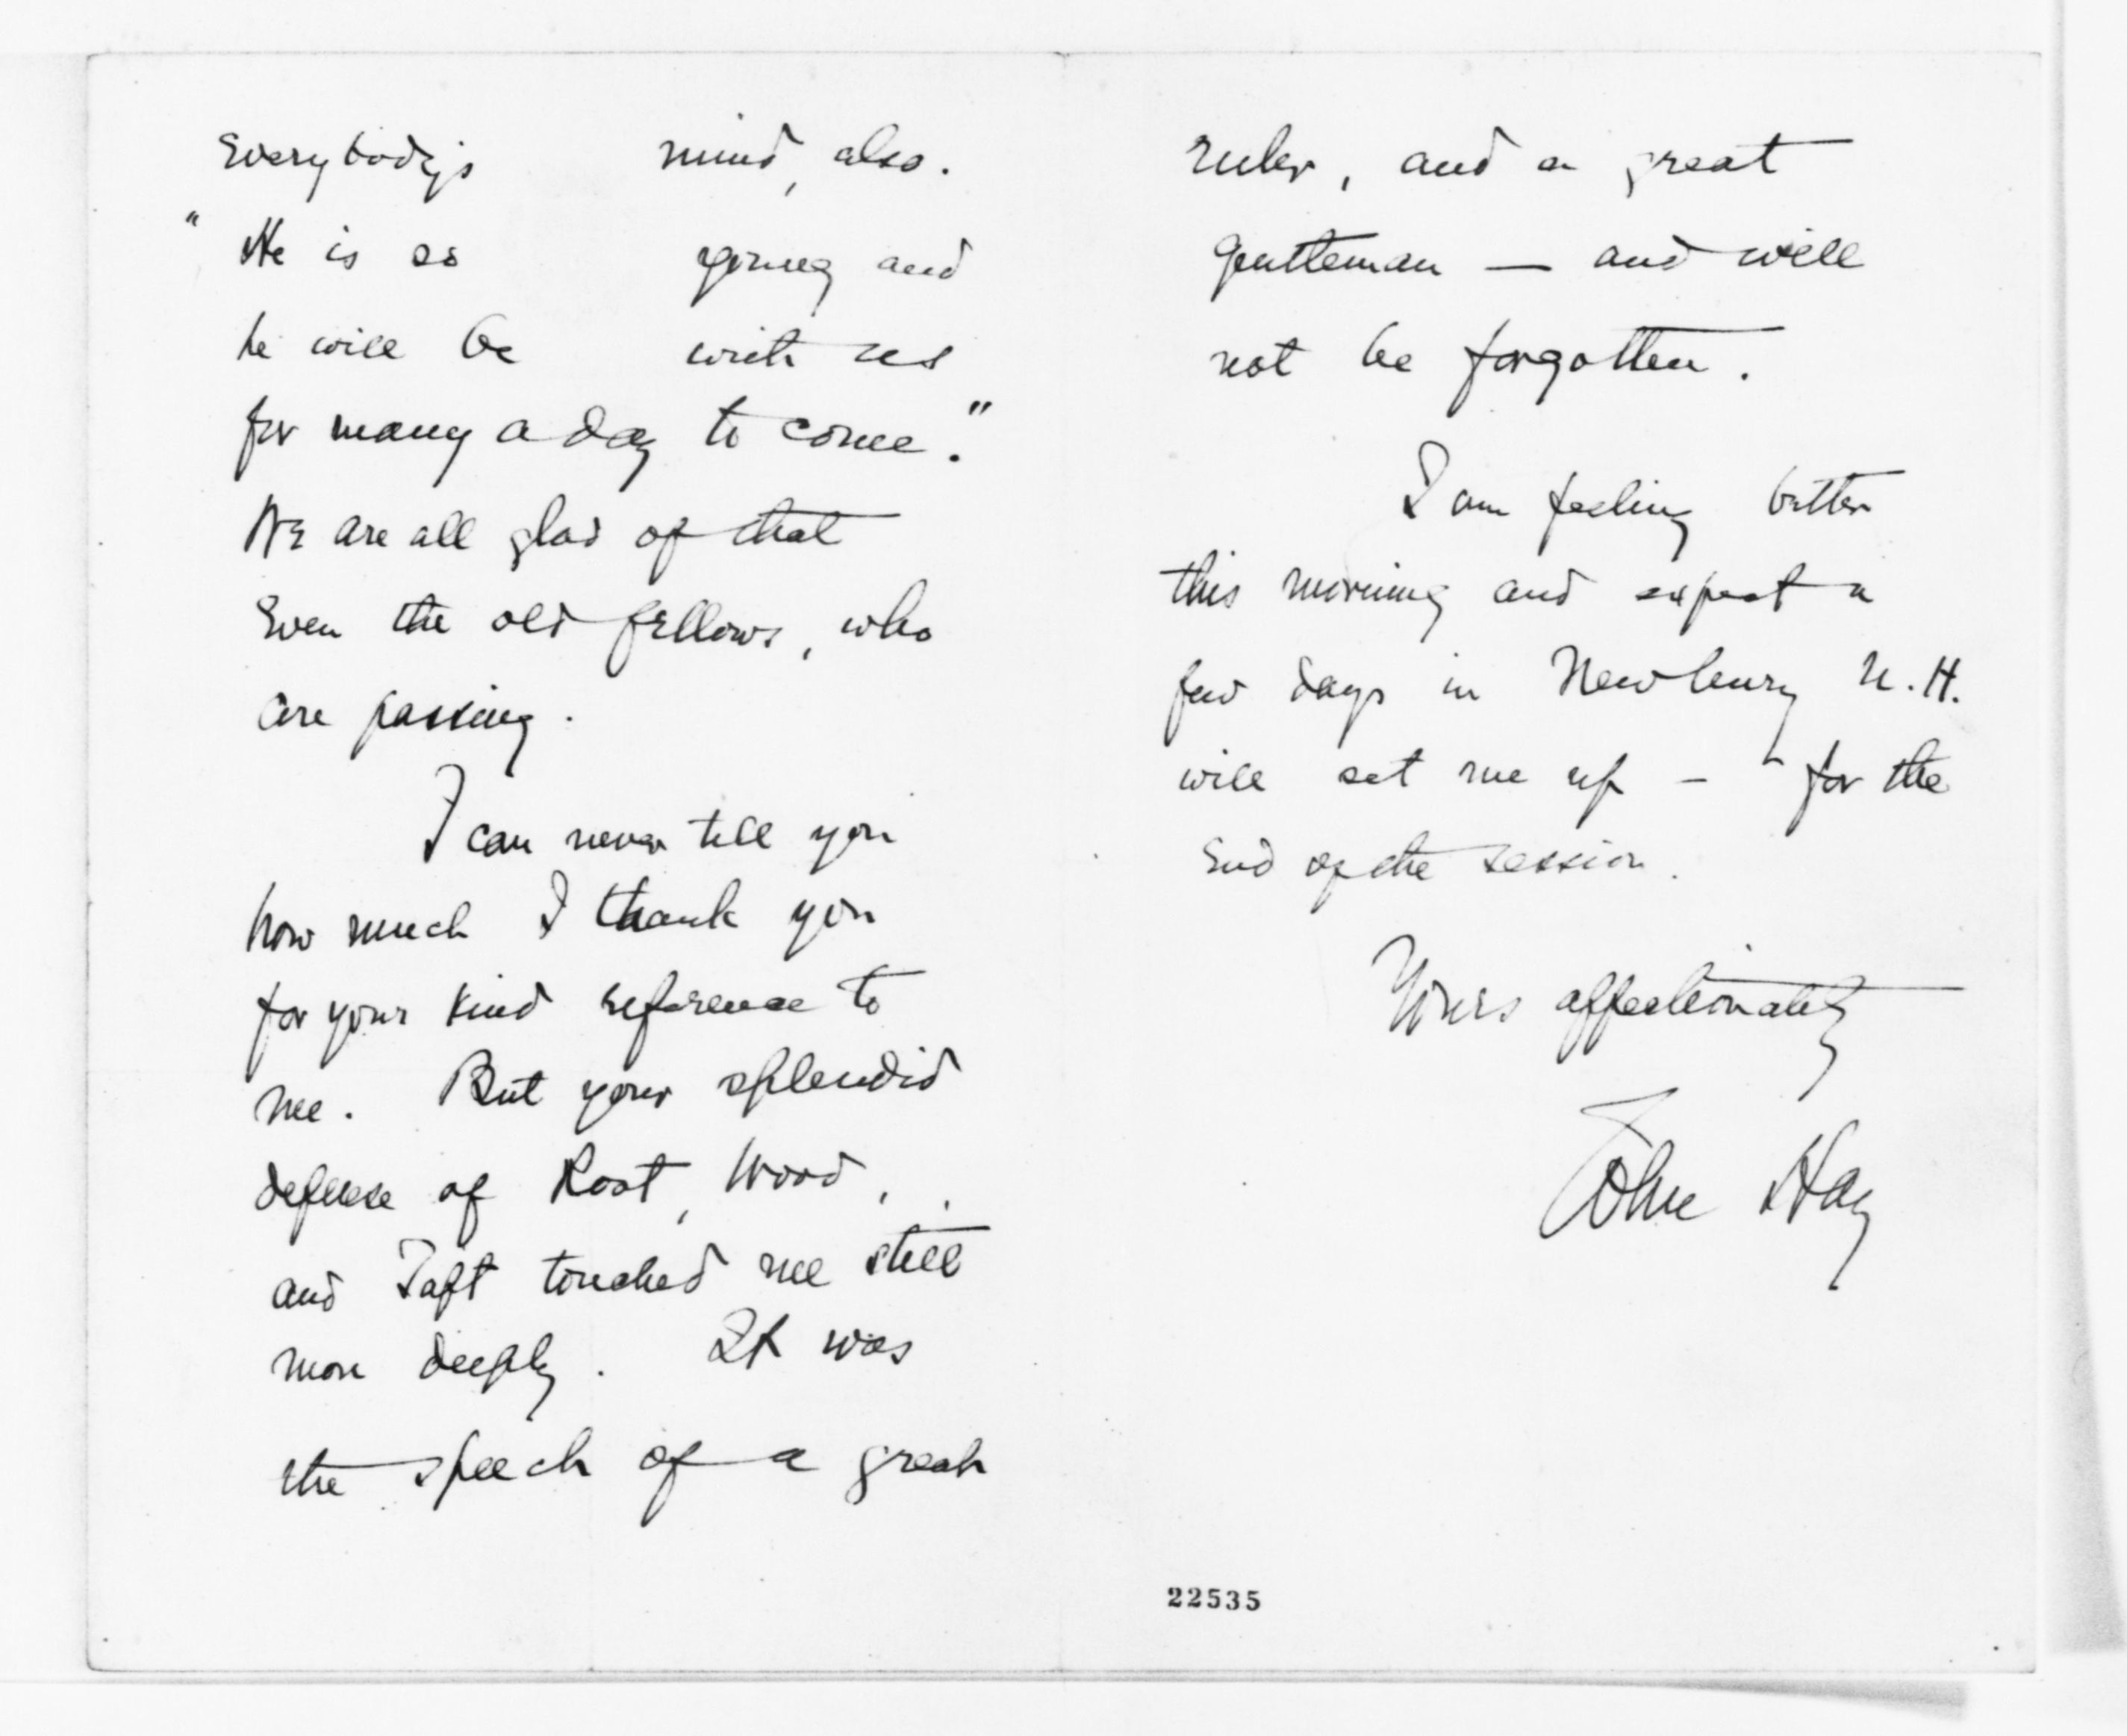 everybody's mind, also.
"He is so young and
he will be with us
for many a day to come."
We are all glad of that
even the old fellows, who
are passing.
I can never tell you
how much I thank you
for your kind reference to
me. But your splendid
defense of Root, Wood,
and Taft touched me still
more deeply. It was
the speech of a great
ruler, and a great
gentleman — and will
not be forgotten.
I am feeling better
this morning and expect a
few days in Newbury N.H.
will set me up — for the
end of the session.
Yours affectionately
John Hay
22535